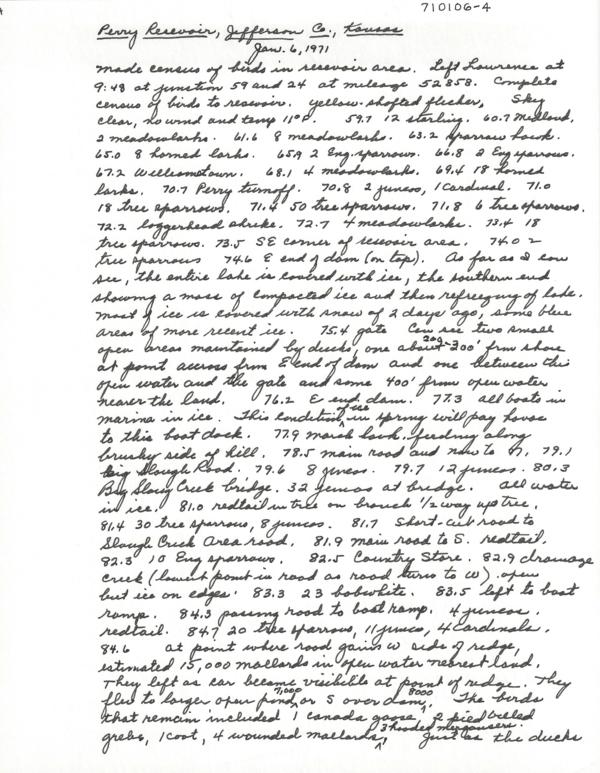 710106-4
Perry Resevoir, Jefferson Co., Kansas
Jan. 6, 1971
Made census of birds in resevoir area. Left Lawrence at
9:48 at junction 59 and 24 at mileage 52858. Complete
census of birds to resevoir. yellow-shafted flicker, Sky
clear, no wind and temp 11°F. 59.7 12 starling. 60.7 Midland,
2 meadowlarks. 61.6 8 meadowlarks. 63.2 sparrow hawk.
65.0 8 horned larks. 65.9 2 Eng. sparrows. 66.8 2 Eng sparrows.
67.2 Williamstown. 68.1 4 meadowlarks. 69.4 18 horned
larks. 70.7 Perry turnoff. 70.8 2 juncos, 1 Cardinal. 71.0
18 tree sparrows. 71.4 50 tree sparrows. 71.8 6 tree sparrows.
72.2 loggerhead shrike. 72.7 4 meadowlarks. 73.4 18
tree sparrows. 73.5 SE corner of resevoir area. 74.0 2
tree sparrows 74.6 E end of dam (on top). As far as I can
see, the entire lake is covered with ice, the southern end
showing a mass of compacted ice and then refreezing of lake.
Most of ice is covered with snow of 2 days ago, some blue
areas of more recent ice. 75.4 gate Can see two small
open areas maintained by ducks, one about 200-300' from shore
at point across from E end of dam and one between this
open water and the gate and some 400' from open water
nearer the land. 76.2 E end dam. 77.3 all boats in
marina in ice. This condition of ice in spring will pay havoc
to this boat dock. 77.9 marsh hawk feeding along
brushy side of hill. 78.5 main road and now to N. 79.1
big Slough Road. 79.6 8 juncos. 79.7 12 juncos. 80.3
Big Slough Creek bridge. 32 juncos at bridge. all water
in ice. 81.0 redtail in tree on branch 1/2 way up tree.
81.4 30 tree sparrows, 8 juncos. 81.7 Short-cut road to
Slough Creek Area road. 81.9 main road to S. redtail.
82.3 10 Eng sparrows. 82.5 Country Store. 82.9 drainage
creek (lowest point in road as road turns to W) open
but ice on edges. 83.3 23 bobwhite. 83.5 left to boat
ramp. 84.3 passing road to boat ramp. 4 juncos.
redtail. 84.7 20 tree sparrows, 11 junco, 4 Cardinals.
84.6 at point where road gains W side of ridge,
estimated 15,000 mallards in open water nearest land.
They left as car became visibible at point of ridge. They
flew to larger open pond 7,000 or S over dam 8000. The birds
that remain included 1 Canada goose, 2 pied billed
grebe, 1 coot, 4 wounded mallards, 3 hooded mergansers. Just as the ducks